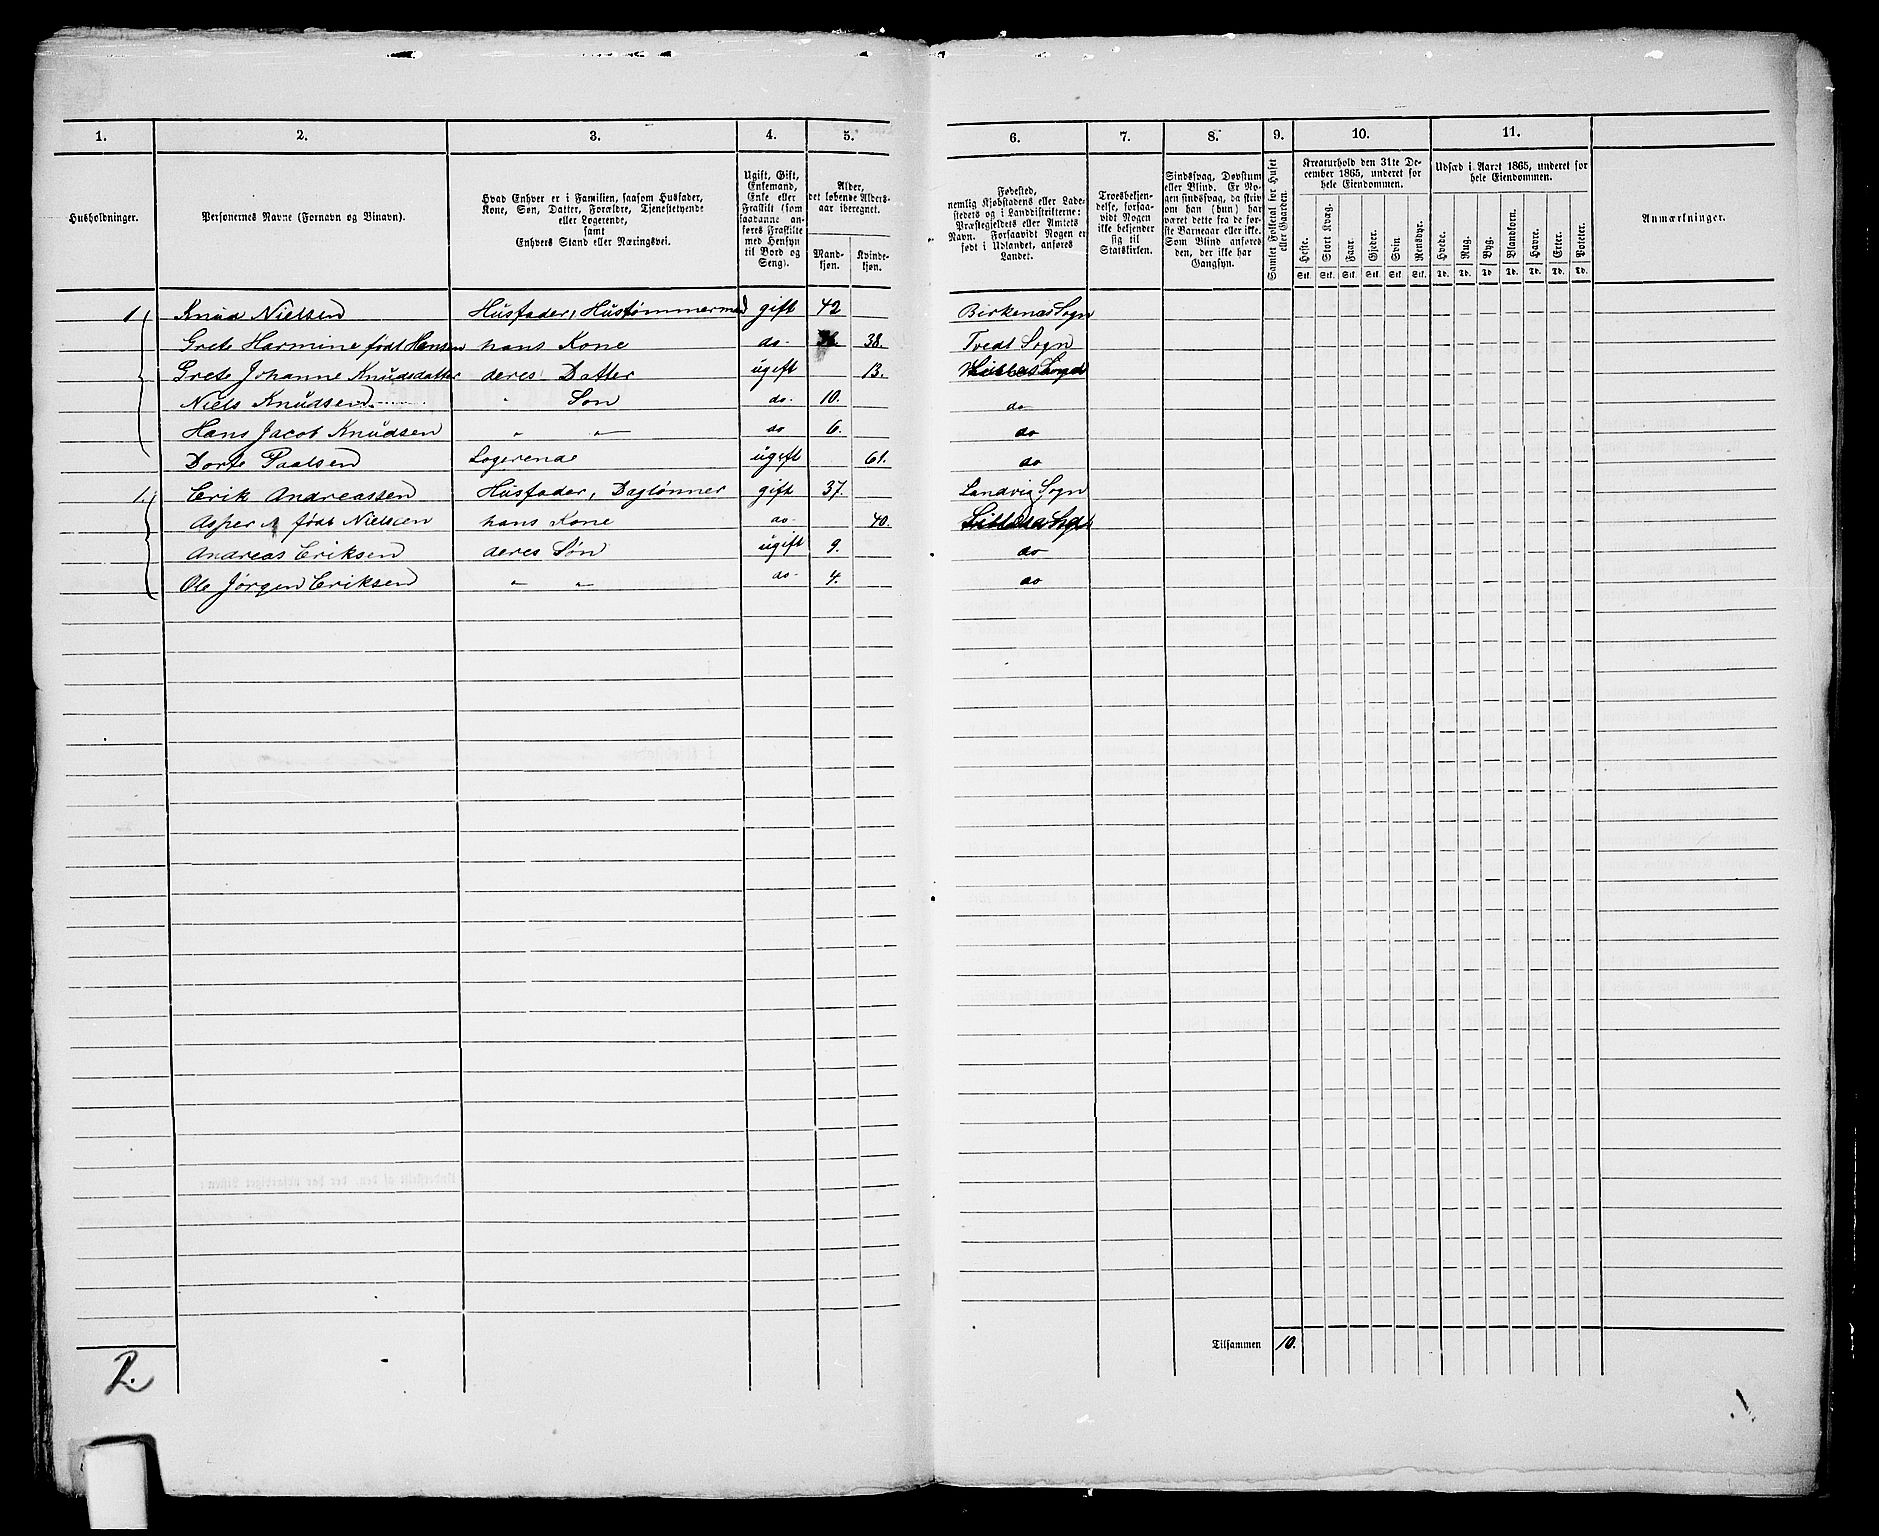 1. 2. 3. 4. 5. 6. 7. 8. 9. 10. 11.
Husholdninger.
Personernes Navne (Fornavn og Binavn).
Hvad Enhver er i Familien, saasom Husfader,
Kone, Søn, Datter, Forældre, Tjenestetyende
eller Logerende,
samt
Enhvers Stand eller Næringsvei.
Ugift, Gift,
Enkemand,
Enke eller
Fraskilt (som
saadanne an-
føres Fraskilte
med Hensyn
til Bord og
Seng).
Alder,
det løbende Alders-
aar iberegnet.
Mand-
kjøn.
Kvinde-
kjøn.
Fødested,
nemlig Kjøbstadens eller Lade-
stedets og i Landdistrikterne:
Præstegjeldets eller Amtets
Navn. Forsaavidt Nogen er
født i Udlandet, anføres
Landet.
Troesbekjen-
delse, forsaa-
vidt Nogen
ikke bekjender
sig til
Statskirken.
Sindssvag, Døvstum
eller Blind. Er No-
gen sindssvag, da skriv
om han (hun) har
været dette fra de før-
ste Barneaar eller ikke.
Som Blind anføres
den, der ikke har
Gangsyn.
Samlet Folketal for Huset
eller Gaarden.
Kreaturhold den 31te De-
cember 1865, underet for
hele Eiendommen.
Heste. Stort Kvæg. Faar. Gjeder. Svin Rensdyr.
Stk. Stk. Stk. Stk. Stk. Stk.
Udsæd i Aaret 1865, underet for
hele Eiendommen.
Hvede. Rug. Byg. Blandkorn. Havre. Erter. Poteter.
Td. Td. Td. Td. Td. Td. Td.
Anmærkninger.
1. Knud Nielsen Husfader, Hustømmermand gift 42 Birkenæs Sogn
Grete Harmine født Hansen hans Kone do. 38. Tvedt Sogn
Grete Johanne Knudsdatter deres Datter ugift 13.
Niels Knudsen " Søn do. 10. do
Hans Jacob Knudsen " " do 6. do
Dorte Paalsen Logerende ugift 61. do
1. Erik Andreassen Husfader, Daglønner gift 37. Landvig Sogn
Asper født Nielsen hans Kone do. 40.
Andreas Eriksen deres Søn ugift 9. do
Ole Jørgen Eriksen " " do. 4. do
Tilsammen 10.
2.